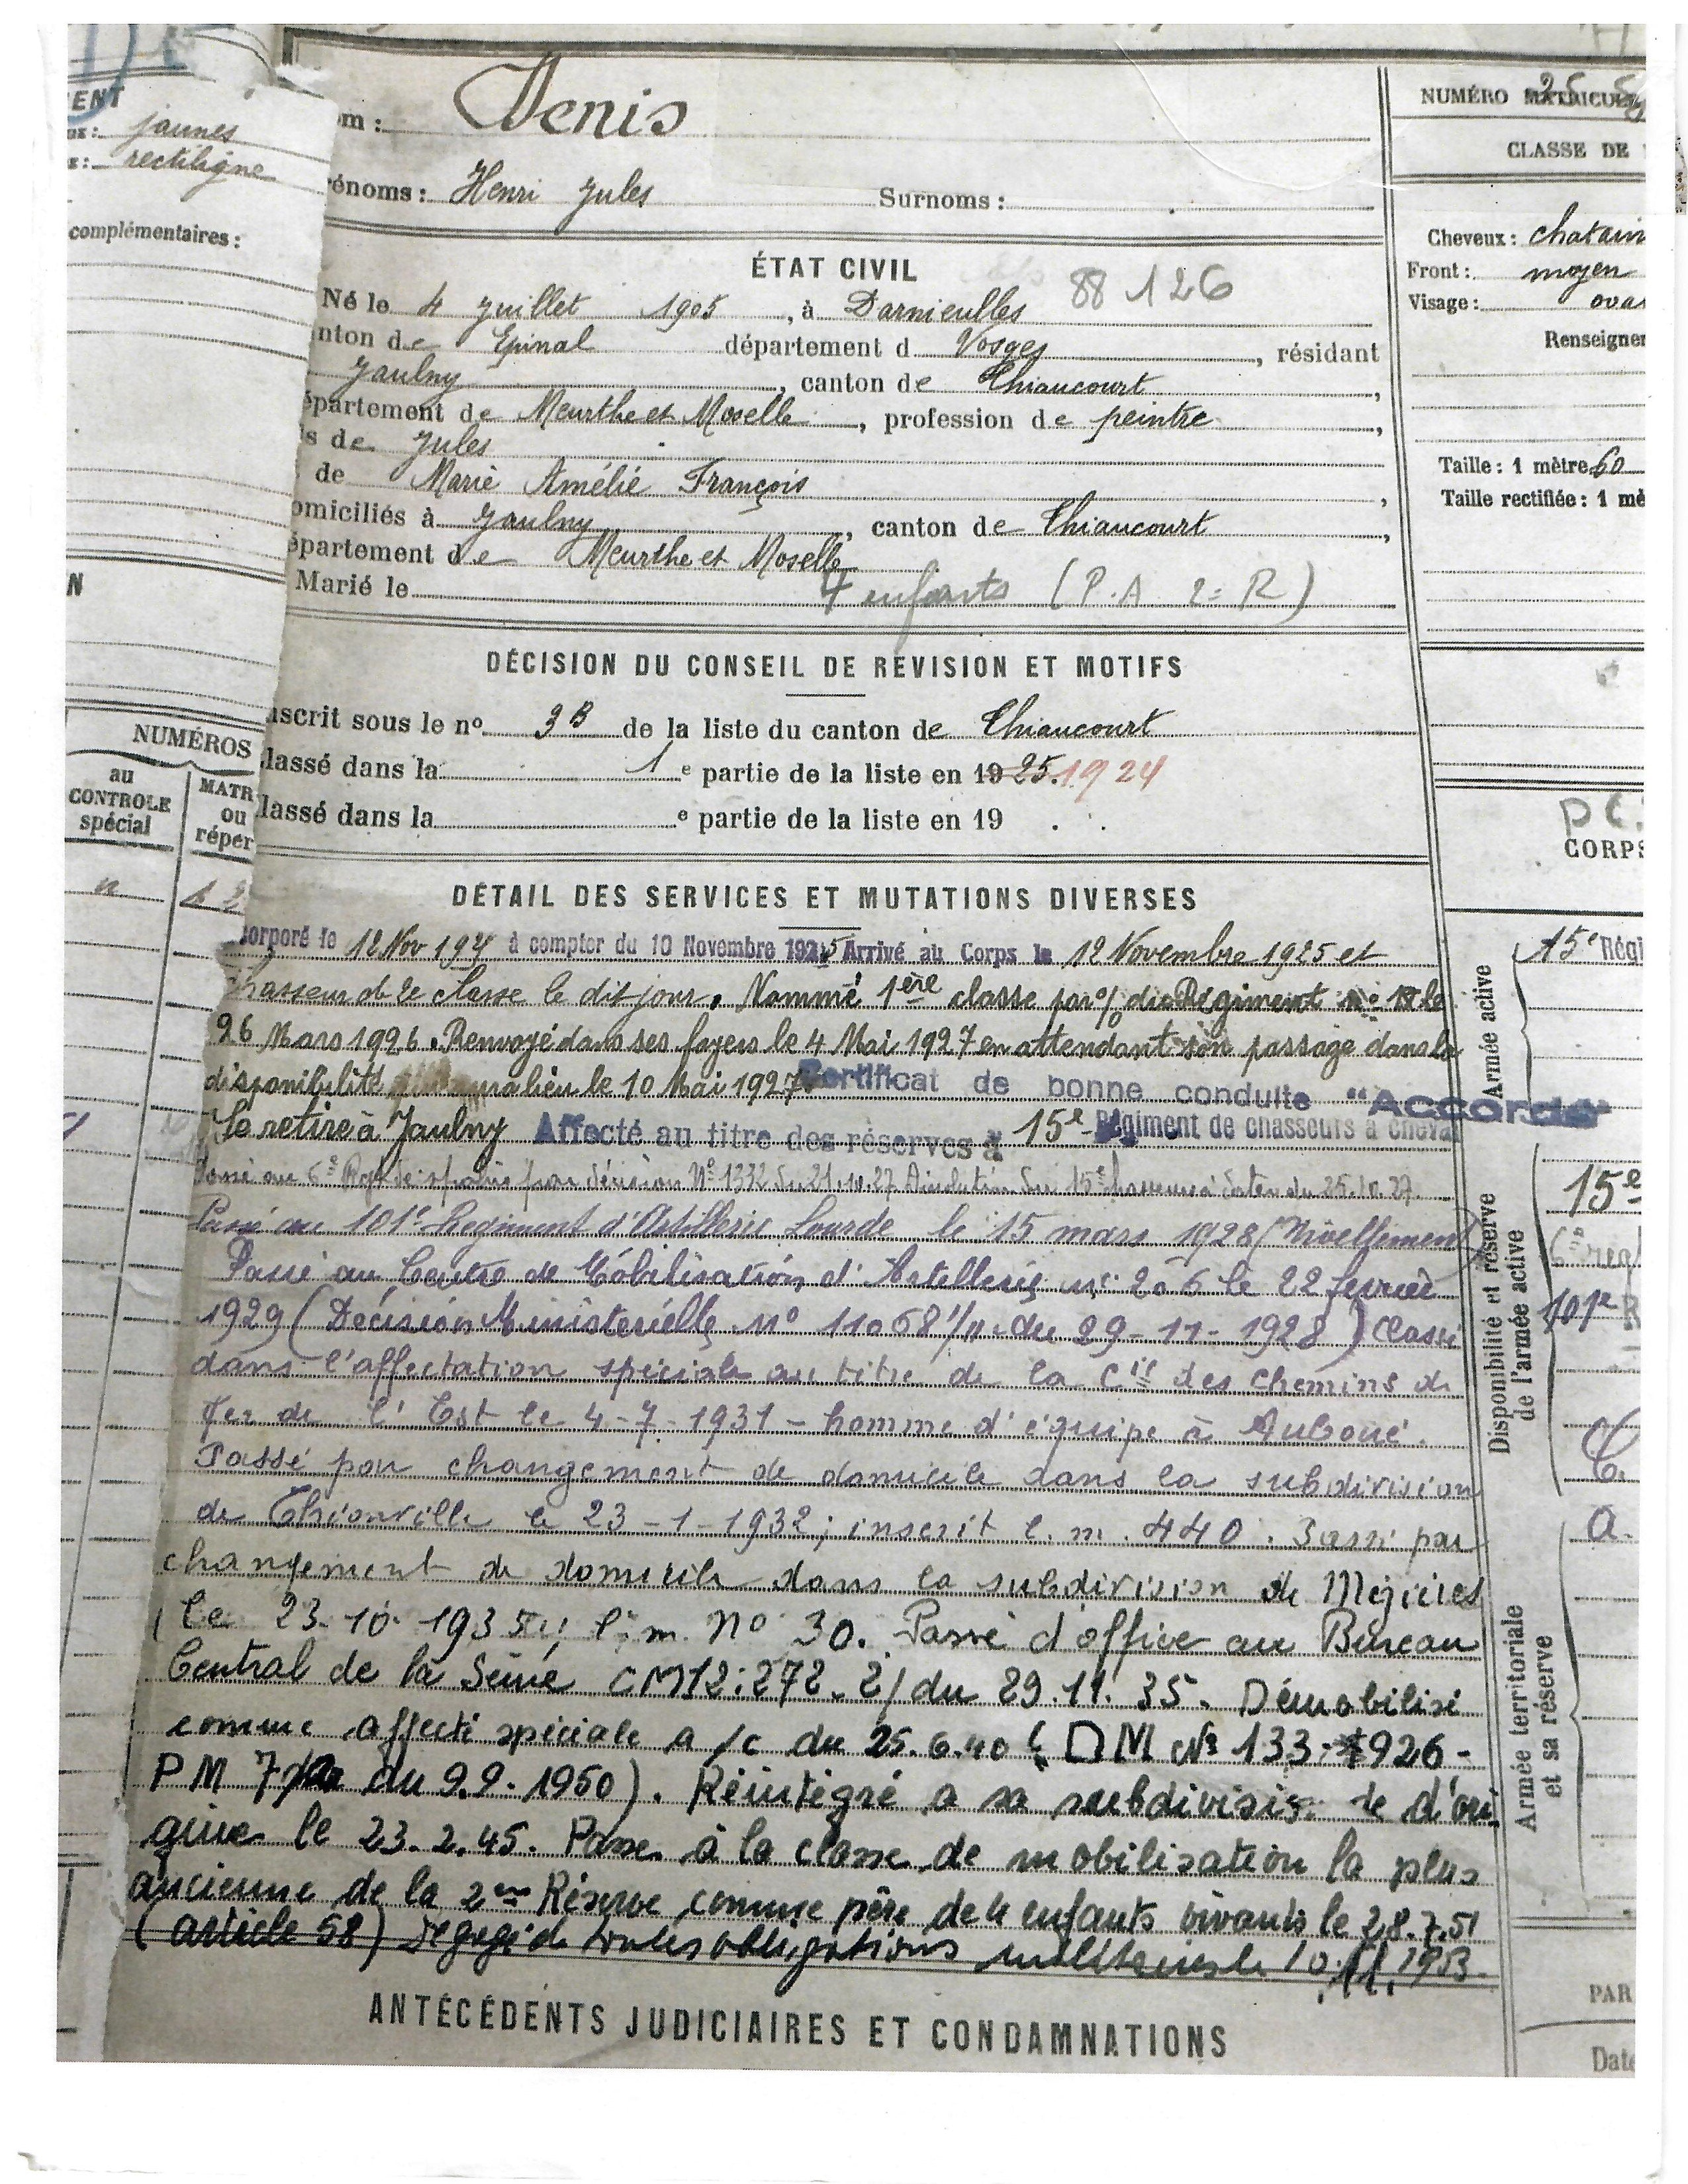 ENT
jaunes
rectiligne
complémentaires :
N
NUMÉROS
au
CONTROLE
spécial
MATR
ou
réper
om : Denis
rénoms : Henri Jules Surnoms :
ÉTAT CIVIL
88 126
Né le 4 Juillet 1905, à Darnieulles
nton de Epinal département d Vosges, résidant
Jaulny, canton de Thiaucourt,
épartement de Meurthe et Moselle, profession de peintre,
ls de Jules
de Marie Amélie François,
omiciliés à Jaulny, canton de Thiaucourt,
épartement de Meurthe et Moselle
Marié le 4 enfants (P.A 2e R)
DÉCISION DU CONSEIL DE REVISION ET MOTIFS
nscrit sous le nº 3B de la liste du canton de Thiaucourt
lassé dans la 1e partie de la liste en 1925. 1924
lassé dans la e partie de la liste en 19 .
DÉTAIL DES SERVICES ET MUTATIONS DIVERSES
corporé le 12 Nov à compter du 10 Novembre 1925 Arrivé au Corps le 12 Novembre 1925 et
chasseur de 2e classe le dit jour. Nommé 1ère classe par o/ du Régiment nº le
26 Mars 1926. Renvoyé dans ses foyers le 4 Mai 1927 en attendant son passage dans la
disponibilité qui aura lieu le 10 Mai 1927 Certificat de bonne conduite "Accordé"
Se retire à Jaulny Affecté au titre des réserves à 15e Régiment de chasseurs à cheval
Passé au 6e Rgt de spahis par décision Nº 1332 du 21.10.27 du 15e chasseurs à dater du 25.10.27.
Passé au 101e Régiment d'Artillerie Lourde le 15 mars 1928 (Nivellement)
Passé au Centre de Mobilisation d'Artillerie nº 206 le 22 février
1929 (Décision Ministérielle nº 11068 1/11 du 29-11-1928) Classé
dans l'affectation spéciale au titre de la Cie des chemins de
fer de l'Est le 4-7-1931 - homme d'équipe à Auboué.
Passé par changement de domicile dans la subdivision
de Thionville le 23-1-1932; inscrit l.m. 440. Passé par
changement de domicile dans la subdivision de Mézières
le 23-10-1935; l.m. nº 30. Passé d'office au Bureau
Central de la Seine CM12:272-2/ du 29.11.35. Démobilisé
comme affecté spéciale a/c du 25.6.40 (DM Nº 133.926-
PM 7/ du 9.9.1950). Réintégré a sa subdivision de d'ori
gine le 23.2.45. Passe à la classe de mobilisation la plus
ancienne de la 2eme Réserve comme père de 4 enfants vivants le 28.7.51
(article 58) Dégagé de toutes obligations militaires le 10.11.1953.
ANTÉCÉDENTS JUDICIAIRES ET CONDAMNATIONS
NUMÉRO MATRICULE
CLASSE DE
Cheveux : chatain
Front : moyen
Visage : ova
Renseigne
Taille : 1 mètre 60
Taille rectifiée : 1 mè
CORPS
Armée active
15e Régi
Disponibilité et réserve
de l'armée active
15e
6e reg
101e R
Armée territoriale
et sa réserve
PAR
Date